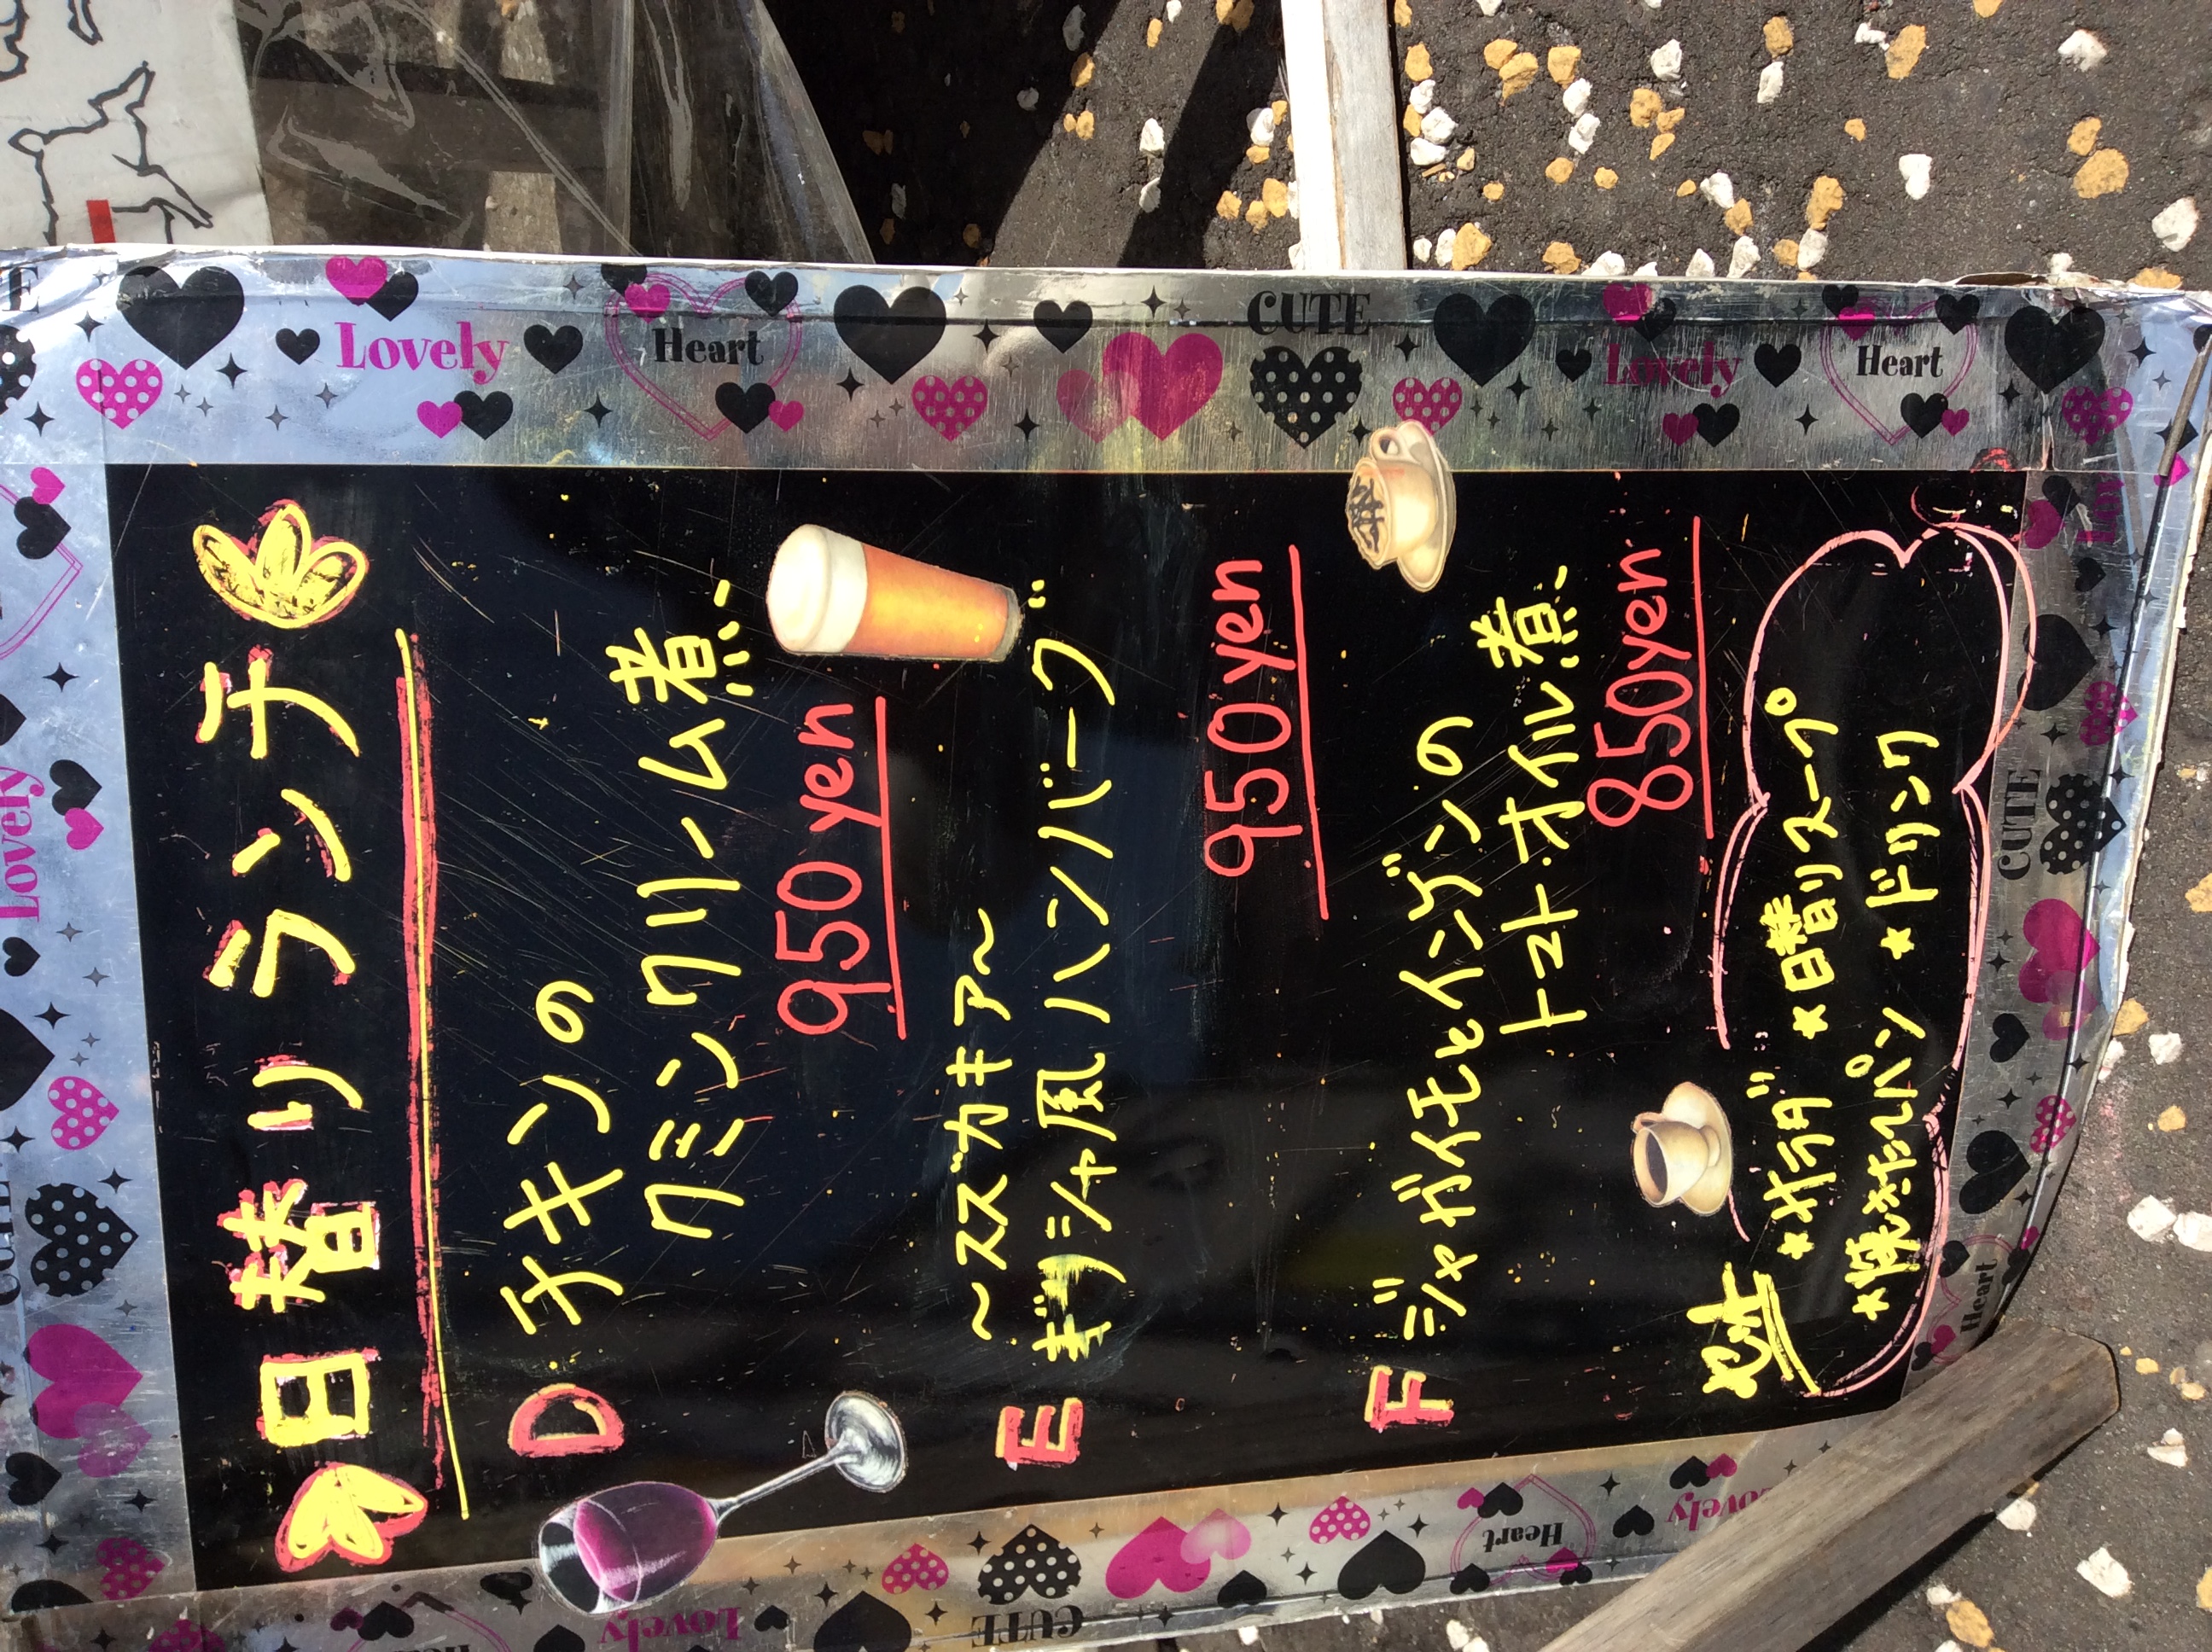 日替りランチ
D チキンの
クミンクリーム煮
950 yen
～スズカキア～
E ギリシャ風ハンバーグ
950 yen
F ジャガイモとインゲンの
トマト・オイル煮
850yen
set
★サラダ ★日替りスープ
★焼きたてパン ★ドリンク
Lovely
Heart
CUTE
Lovely
Heart
Lovely
CUTE
Heart
Lovely
Heart
CUTE
Lovely